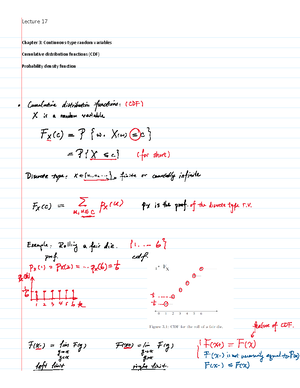 Lecture 17
Chapter 3: Continuous type random variables
Cumulative distribution functions (CDF)
Probability density function
• Cumulative distribution functions: (CDF)
X is a random variable
F_X(c) = P{ω: X(ω) ≤ c}
= P{X ≤ c} (for short)
Discrete type: finite or countably infinite
F_X(c) = Σ p_X(u) p_X is the pmf. of the discrete type r.v.
Example: Rolling a fair die. {1, ... 6}
pmf. cdf.
p_X(1) = p_X(2) = ... p_X(6) = 1/6
1 2 3 4 5 6
0 1 2 3 4 5 6
Figure 3.1: CDF for the roll of a fair die.
feature of CDF.
F(x-) = lim F(y) F(x+) = lim F(y) F(x+) = F(x)
y→x y→x F(x-) is not necessarily equal to F(x)
y<x y>x F(x-) ≤ F(x)
left limit right limit